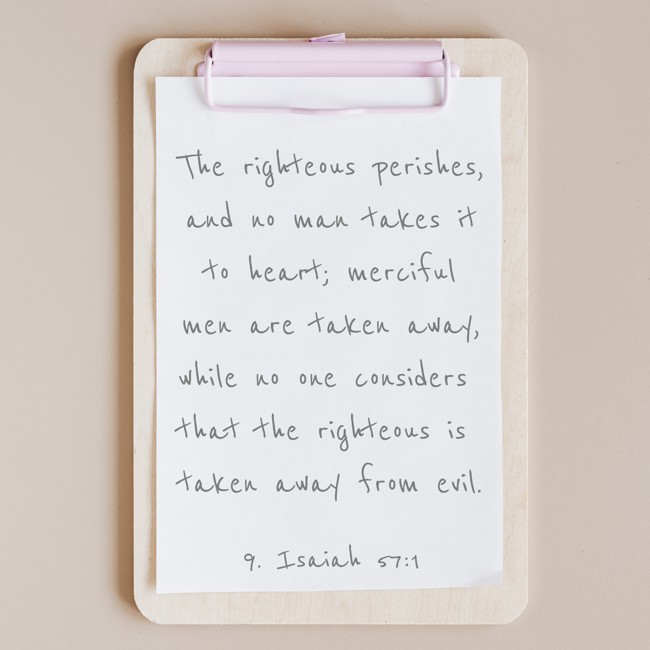 The righteous perishes,
and no man takes it
to heart; merciful
men are taken away,
while no one considers
that the righteous is
taken away from evil.
9. Isaiah 57:1